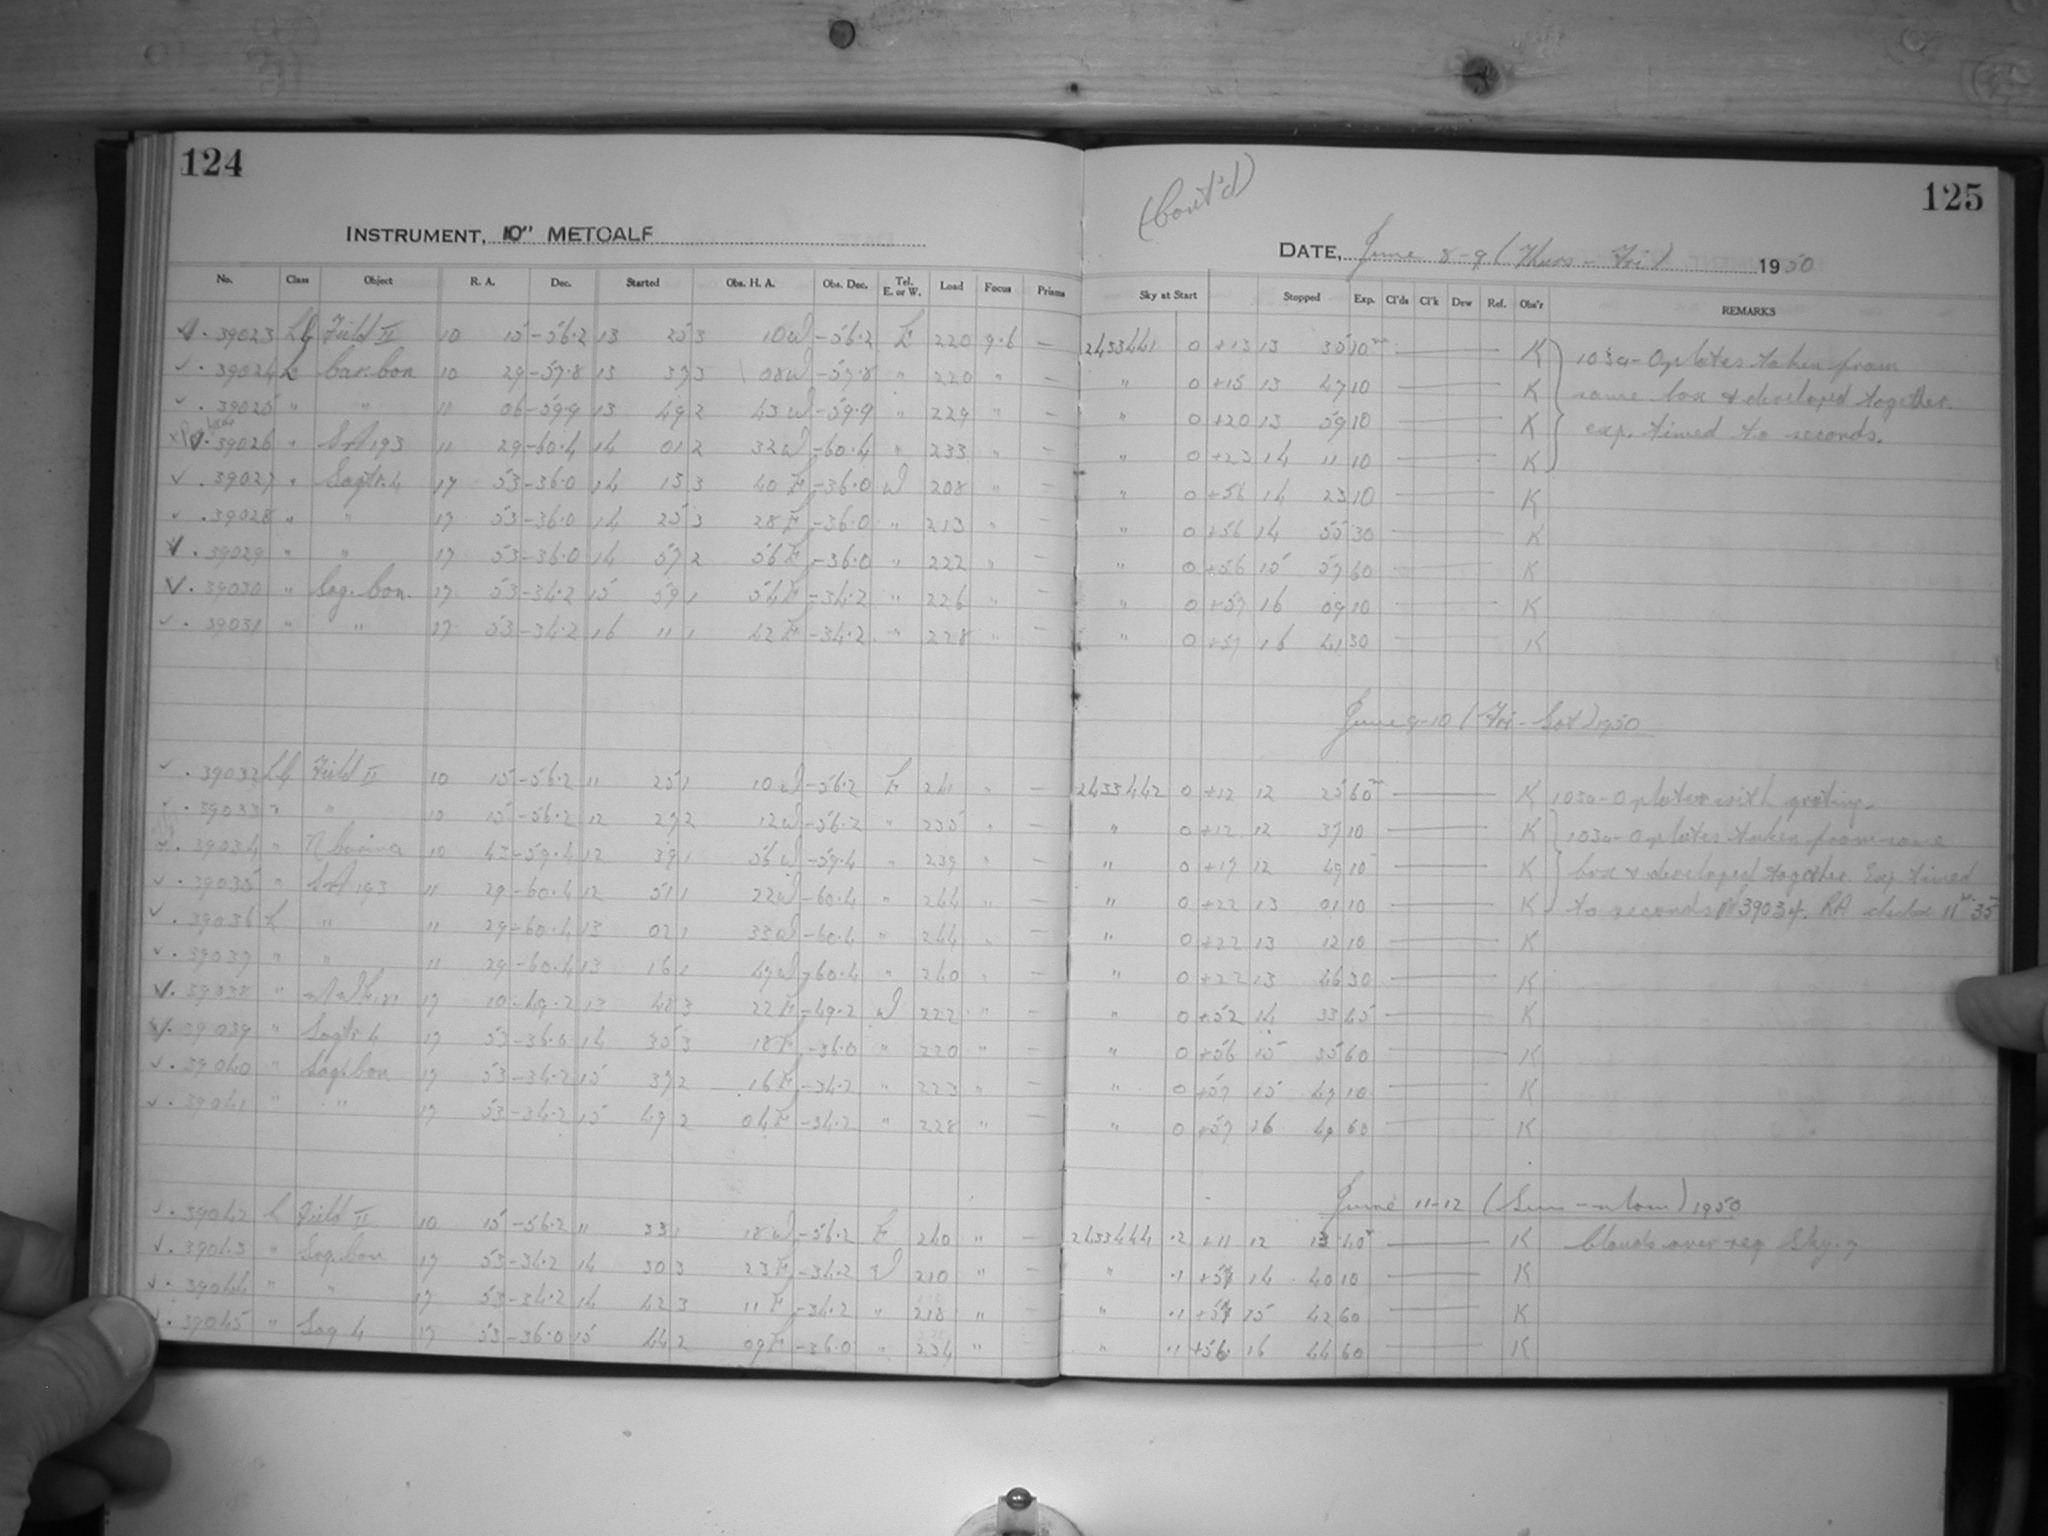 124
(Cont'd)
125
INSTRUMENT, 10" METCALF
DATE, June 8-9 (Thurs - Fri) 1950
No. Class Object R. A. Dec. Started Obs. H. A. Obs. Dec. Tel. E. or W. Load Focus Prisms Sky at Start Stopped Exp. Cl'ds Cl'k Dew Ref. Obs'r REMARKS
39023 LG Field II 10 15 -56.2 13 25 3 10 W -56.2 E 220 9.6 — 2433441 0 +13 13 35 10m K 103a-O plates taken from
39024 L Car. Con 10 29 -57.8 13 37 3 08W -57.8 " 220 " — " 0 +15 13 47 10 K same box & developed together.
39025 " " 11 06 -59.9 13 49 2 43 W -59.9 " 229 " — " 0 +20 13 59 10 K exp. timed to seconds.
39026 " SA 193 11 29 -60.4 14 01 2 32W -60.4 " 233 " — " 0 +23 14 11 10 K
39027 " Sagtr. 4 17 53 -36.0 14 13 3 40 E -36.0 W 208 " — " 0 +56 14 23 10 K
39028 " " 17 53 -36.0 14 25 3 28 E -36.0 " 213 " — " 0 +56 14 55 30 K
39029 " " 17 53 -36.0 14 57 2 56 E -36.0 " 222 " — " 0 +56 15 57 60 K
39030 " Sag. Con. 17 53 -34.2 15 59 1 54 E -34.2 " 226 " — " 0 +57 16 09 10 K
39031 " " 17 53 -34.2 16 11 1 42 E -34.2 " 228 " — " 0 +57 16 41 30 K
June 9-10 (Fri - Sat) 1950
39032 LG Field II 10 15 -56.2 11 25 1 10 W -56.2 E 241 " — 2433442 0 +12 12 25 60m K 103a-O plates with grating.
39033 " " 10 15 -56.2 12 27 2 12W -56.2 " 235 " — " 0 +12 12 37 10 K 103a-O plates taken from same
39034 " N Carina 10 43 -59.4 12 39 1 56 W -59.4 " 239 " — " 0 +17 12 49 10 K box & developed together. Exp timed
39035 " SA 193 11 29 -60.4 12 51 1 22W -60.4 " 244 " — " 0 +22 13 01 10 K to seconds 39034. RA 11 35
39036 L " 11 29 -60.4 13 02 1 33W -60.4 " 244 " — " 0 +22 13 12 10 K
39037 " " 11 29 -60.4 13 16 1 47W -60.4 " 240 " — " 0 +22 13 46 30 K
39038 " 17 10 -49.2 13 48 3 22 E -49.2 W 222 " — " 0 +52 14 33 45 K
39039 " Sagtr 4 17 53 -36.0 14 35 3 18 E -36.0 " 220 " — " 0 +56 15 35 60 K
39040 " Sag. Con 17 53 -34.2 15 37 2 16 E -34.2 " 223 " — " 0 +57 15 47 10 K
39041 " " 17 53 -34.2 15 49 2 04 E -34.2 " 228 " — " 0 +57 16 49 60 K
June 11-12 (Sun - Mon) 1950
39042 L Field II 10 15 -56.2 11 33 1 18 W -56.2 E 240 " — 2433444 .2 +11 12 13 40m K Clouds over reg Sky.7
39043 " Sag. Con 17 53 -34.2 14 30 3 23 E -34.2 W 210 " — " .1 +57 14 40 10 K
39044 " " 17 53 -34.2 14 42 3 11 E -34.2 " 218 " — " .1 +57 15 42 60 K
39045 " Sag 4 17 53 -36.0 15 44 2 09 E -36.0 " 234 " — " .1 +56 16 44 60 K